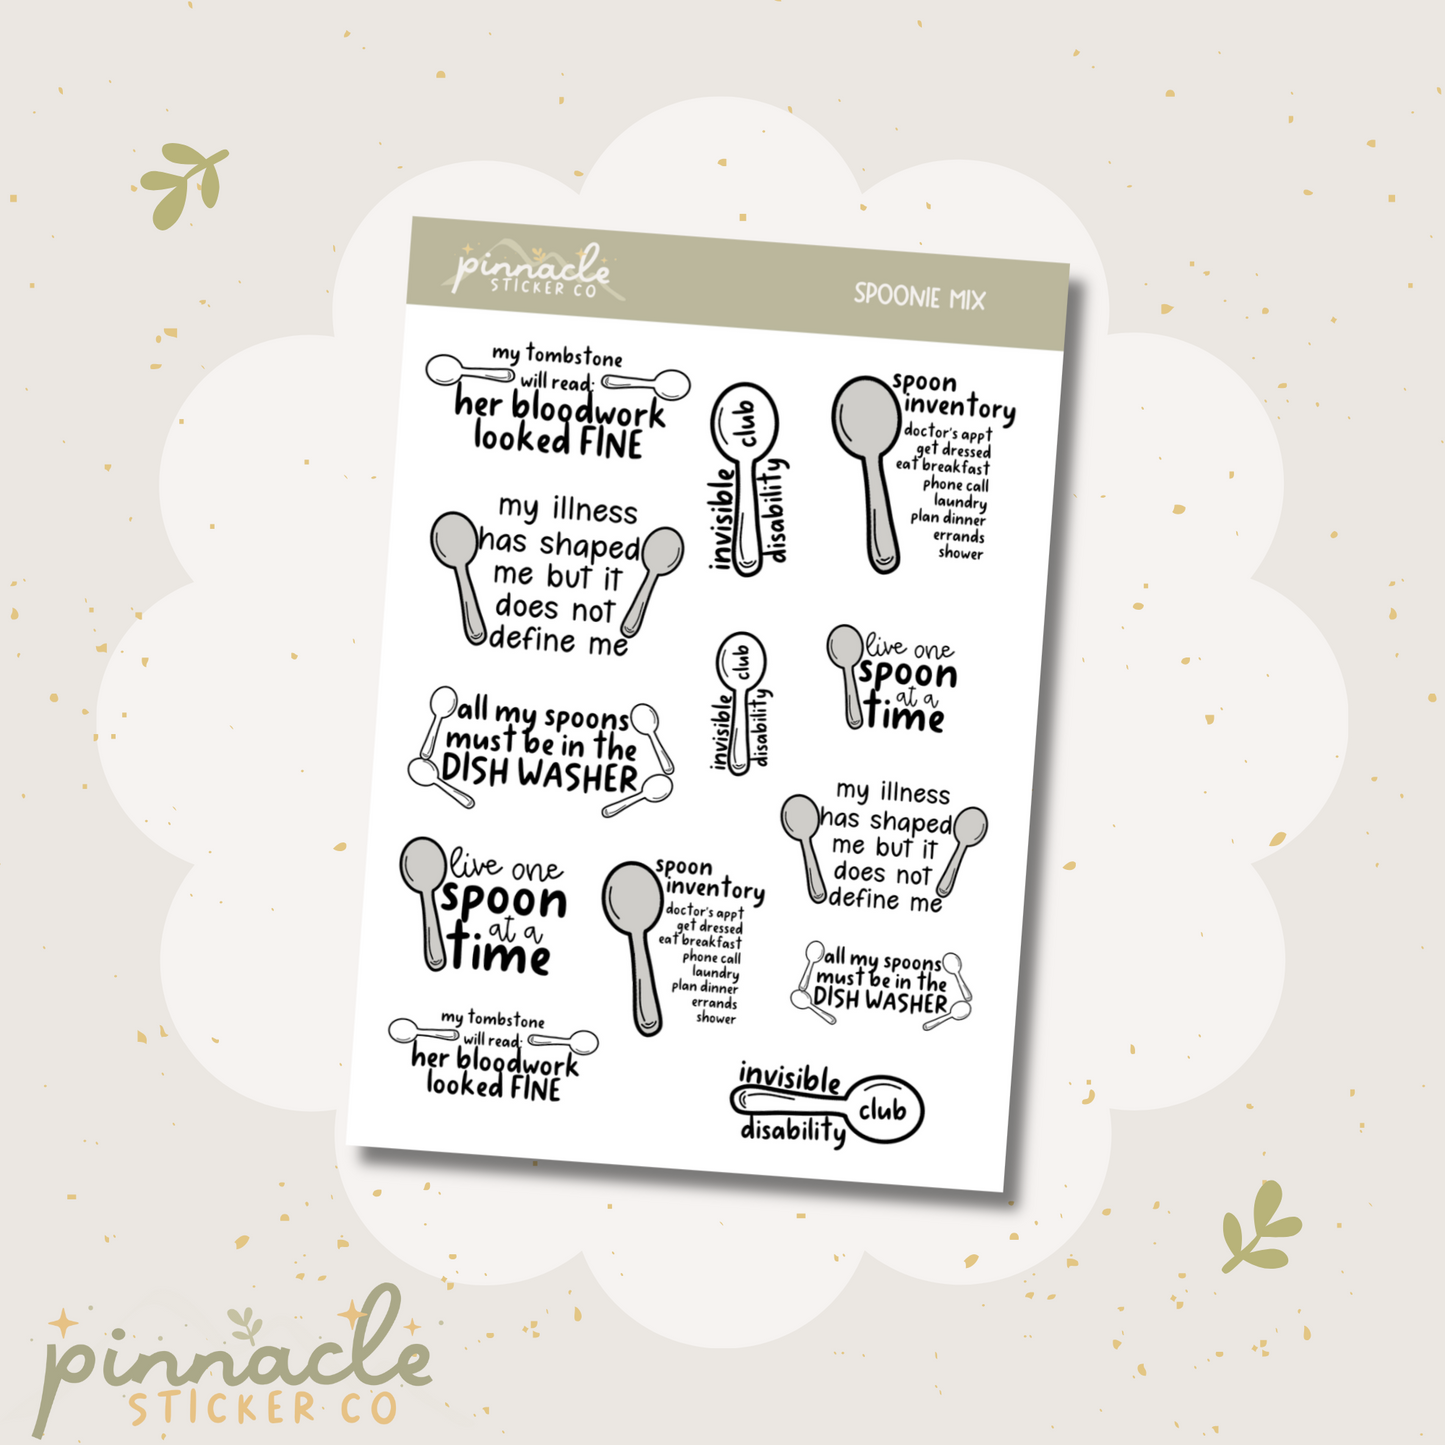 pinnacle
STICKER CO
SPOONIE MIX
my tombstone
will read:
her bloodwork
looked FINE
club
invisible
disability
spoon
inventory
doctor's appt
get dressed
eat breakfast
phone call
laundry
plan dinner
errands
shower
my illness
has shaped
me but it
does not
define me
club
invisible
disability
live one
spoon
at a
time
all my spoons
must be in the
DISH WASHER
my illness
has shaped
me but it
does not
define me
live one
spoon
at a
time
spoon
inventory
doctor's appt
get dressed
eat breakfast
phone call
laundry
plan dinner
errands
shower
all my spoons
must be in the
DISH WASHER
my tombstone
will read:
her bloodwork
looked FINE
invisible
club
disability
pinnacle
STICKER CO